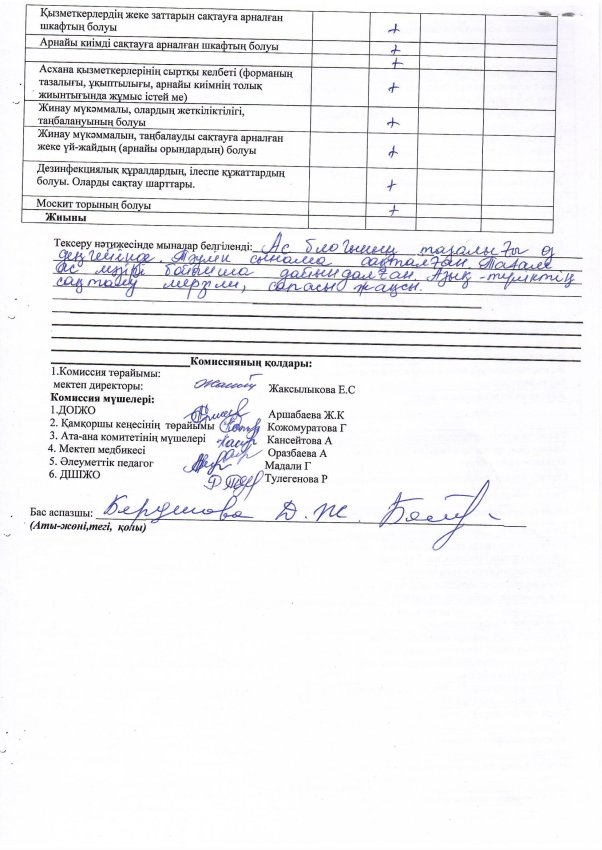 Қызметкерлердің жеке заттарын сақтауға арналған
шкафтың болуы +
Арнайы киімді сақтауға арналған шкафтың болуы +
+
Асхана қызметкерлерінің сыртқы келбеті (форманың
тазалығы, ұқыптылығы, арнайы киімнің толық
жиынтығында жұмыс істей ме) +
Жинау мүкәммалы, олардың жеткіліктілігі,
таңбалануының болуы +
Жинау мүкәммалын, таңбалауды сақтауға арналған
жеке үй-жайдың (арнайы орындардың) болуы +
Дезинфекциялық құралдардың, ілеспе құжаттардың
болуы. Оларды сақтау шарттары. +
Москит торының болуы +
Жиыны
Тексеру нәтижесінде мыналар белгіленді: Ас блогының тазалығы өз
деңгейінде. Тәулік сынама сақталған. Тағам
ас мәзірі бойынша дайындалған. Азық-түліктің
сақталу мерзімі, сапасы жақсы.
Комиссияның қолдары:
1.Комиссия төрайымы:
мектеп директоры: Жаксылыкова Е.С
Комиссия мүшелері:
1.ДОІЖО Аршабаева Ж.К
2. Қамқоршы кеңесінің төрайымы Кожомуратова Г
3. Ата-ана комитетінің мүшелері Кансейтова А
4. Мектеп медбикесі Оразбаева А
5. Әлеуметтік педагог Мадали Г
6. ДШІЖО Тулегенова Р
Бас аспазшы: Д. Ж.
(Аты-жөні,тегі, қолы)